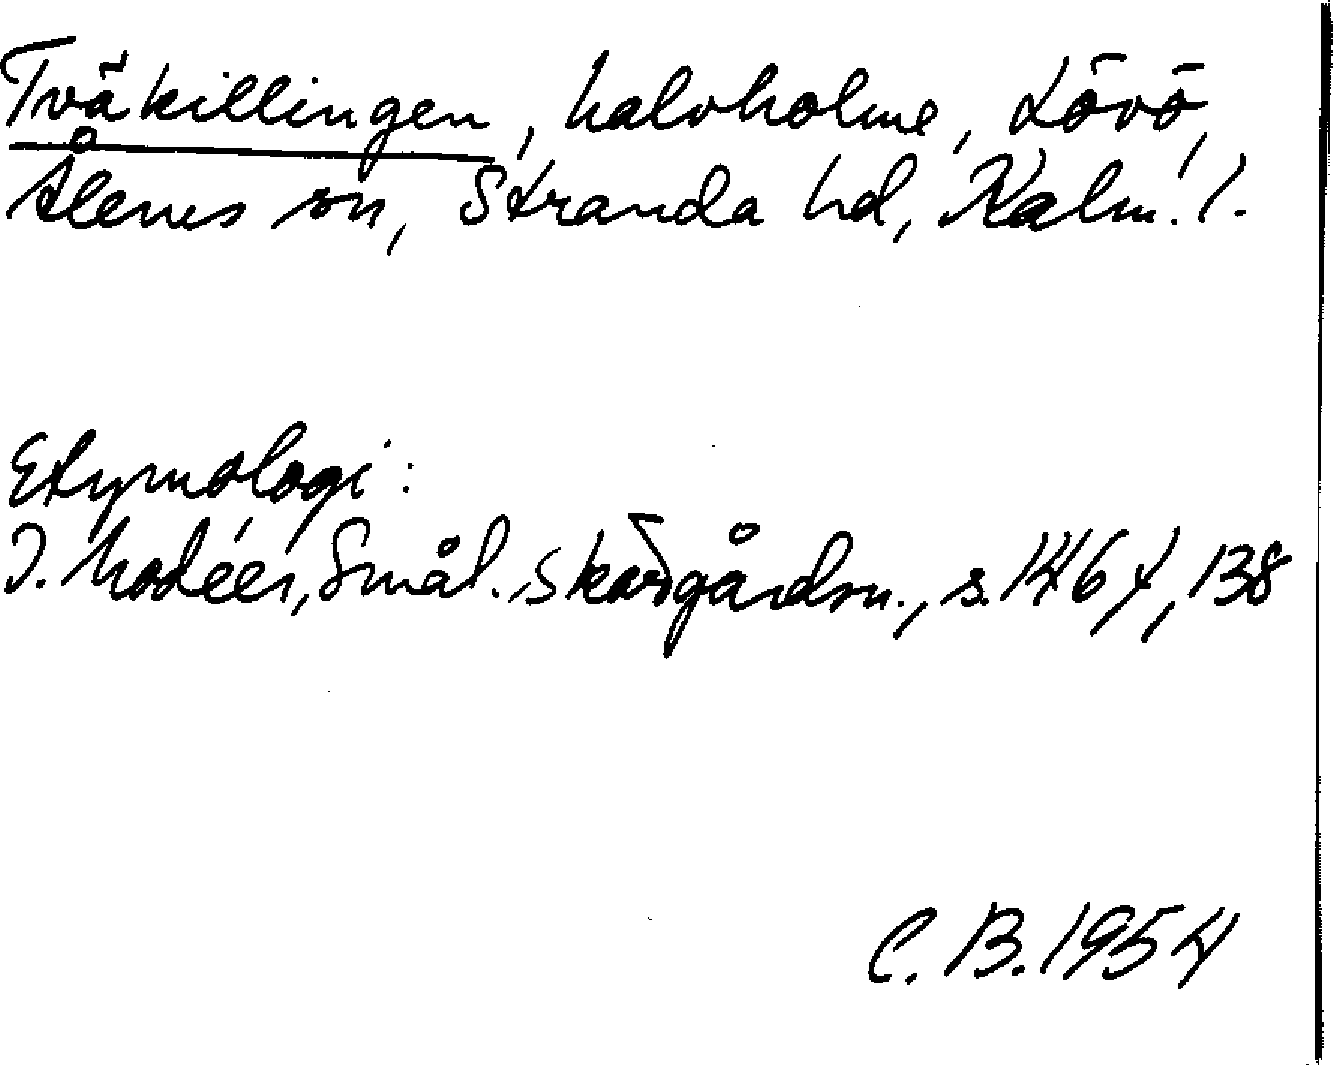 Tväkillingen, halvholme, Lövö,
Ålems sn, Stranda hd, Kalm. l.
Etymologi:
I. Modéer, Smål. skärgårdsn., s. 146 f, 138
C. B. 1954